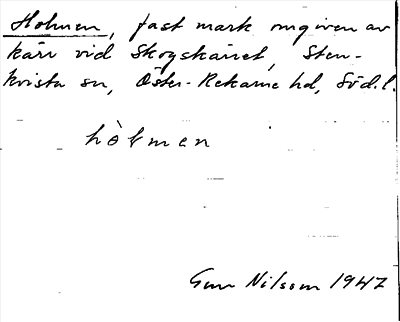 Holmen, fast mark omgiven av
kärr vid Skogskärret, Sten-
kvista sn, Öster-Rekarne hd, Söd.l.
hòlmen
Gun Nilsson 1947